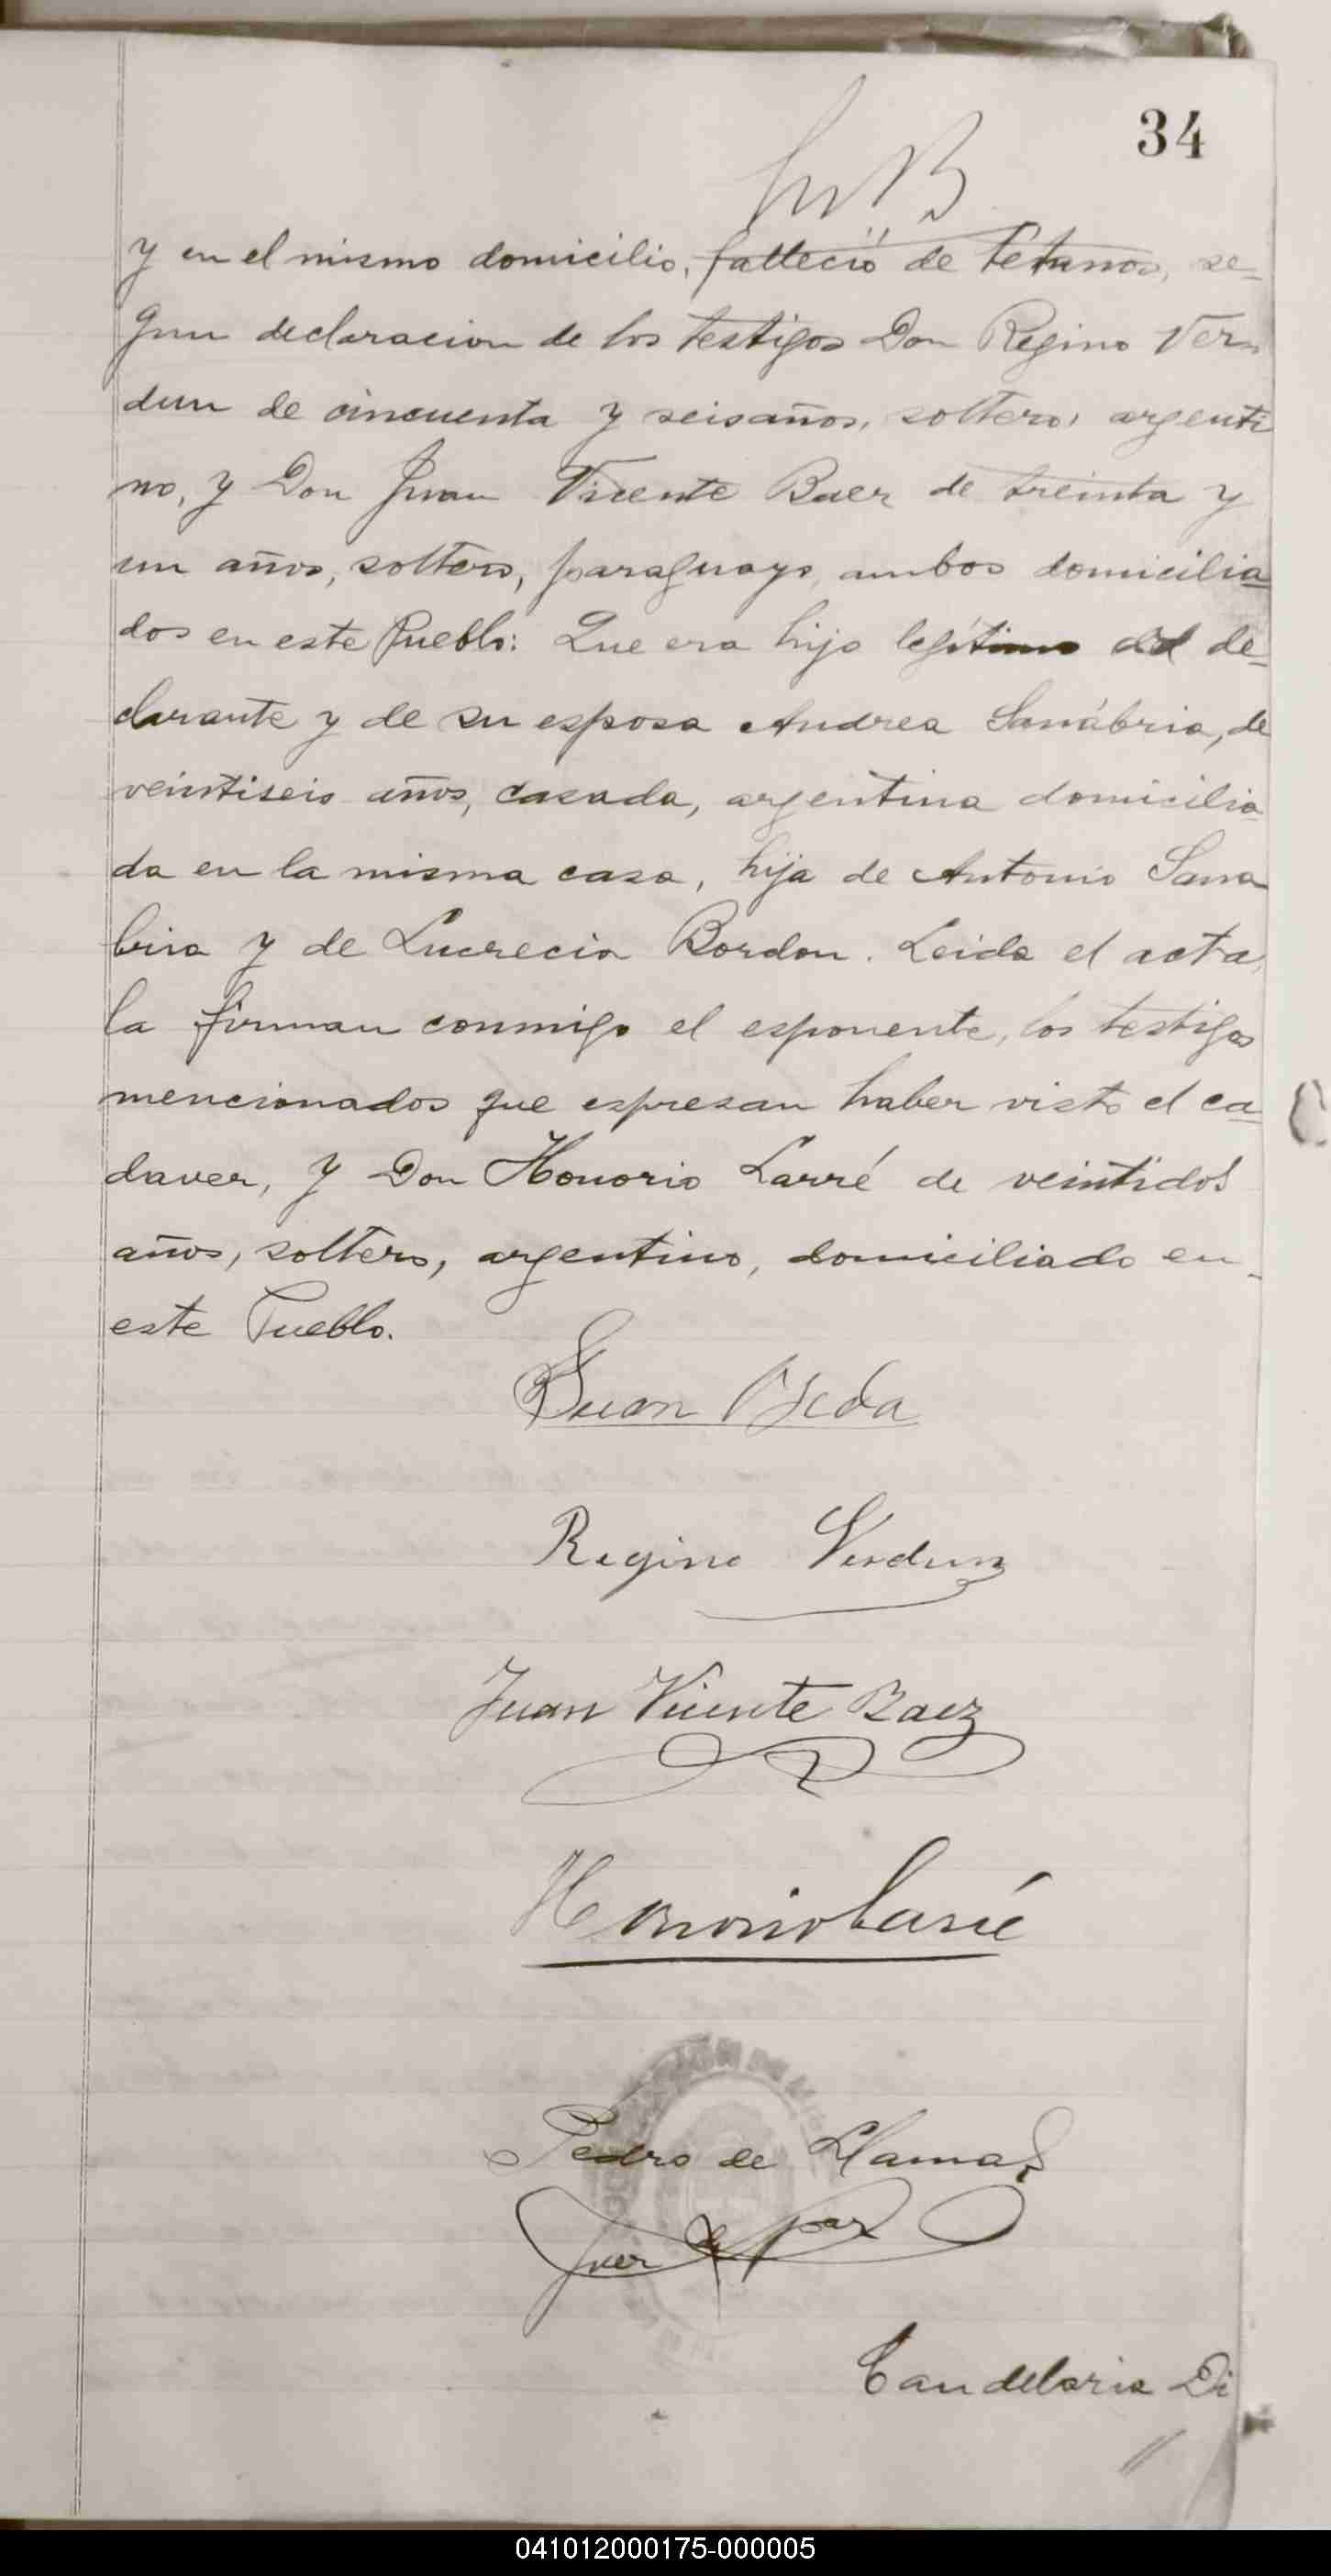 34
y en el mismo domicilio, falleció de tetanos, se-
gun declaracion de los testigos Don Regino Ver-
dun de cincuenta y seis años, soltero, argenti
no, y Don Juan Vicente Baez de treinta y
un años, soltero, paraguayo, ambos domicilia
dos en este Pueblo: Que era hijo legítimo del de-
clarante y de su esposa Andrea Sanábria, de
veintiseis años, casada, argentina domicilia
da en la misma casa, hija de Antonio Sana
bria y de Lucrecia Bordon. Leida el acta,
la firman conmigo el esponente, los testigos
mencionados que espresan haber visto el ca
daver, y Don Honorio Larré de veintidos
años, soltero, argentino, domiciliado en-
este Pueblo.
Juan Ojeda
Regino Verdun
Juan Vicente Baez
Honorio Larré
Pedro de Llamas
Juez de paz
Candelaria Di
041012000175-000005